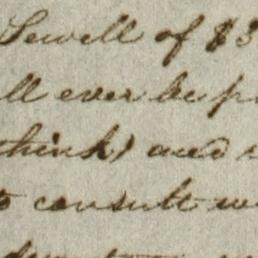 Sewell of $3
ll ever be p
think) and
to consult w